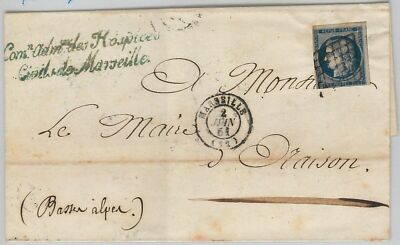 Com.on Adm.ve des Hospices
Civils de Marseille
REPUB. FRANC.
A Monsieur
MARSEILLE
2
JUIN
51
(12)
Le Maire d'Oraison
(Basses alpes)